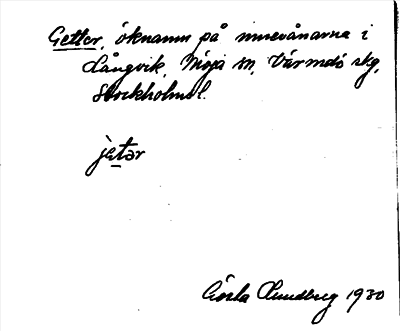 Getter, öknamn på invånarna i
Långvik, Möja sn, Värmdö skg,
Stockholms l.
jetər
Gösta Lundberg 1930